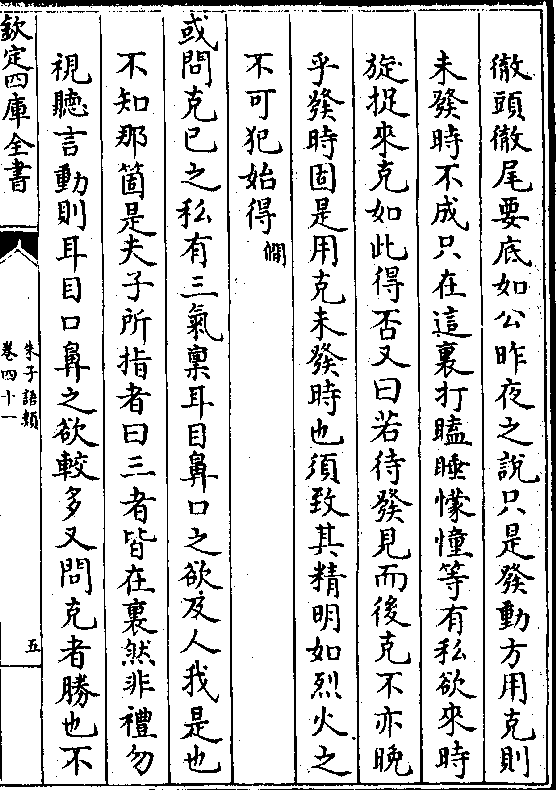 徹頭徹尾要底如公昨夜之說只是發動方用克則
未發時不成只在這裏打瞌睡懞憧等有私欲來時
旋捉來克如此得否又曰若待發見而後克不亦晚
乎發時固是用克未發時也須致其精明如烈火之
不可犯始得僩
或問克已之私有三氣稟耳目鼻口之欲及人我是也
不知那箇是夫子所指者曰三者皆在裏然非禮勿
視聽言動則耳目口鼻之欲較多又問克者勝也不
欽定四庫全書
朱子語類
卷四十一
五